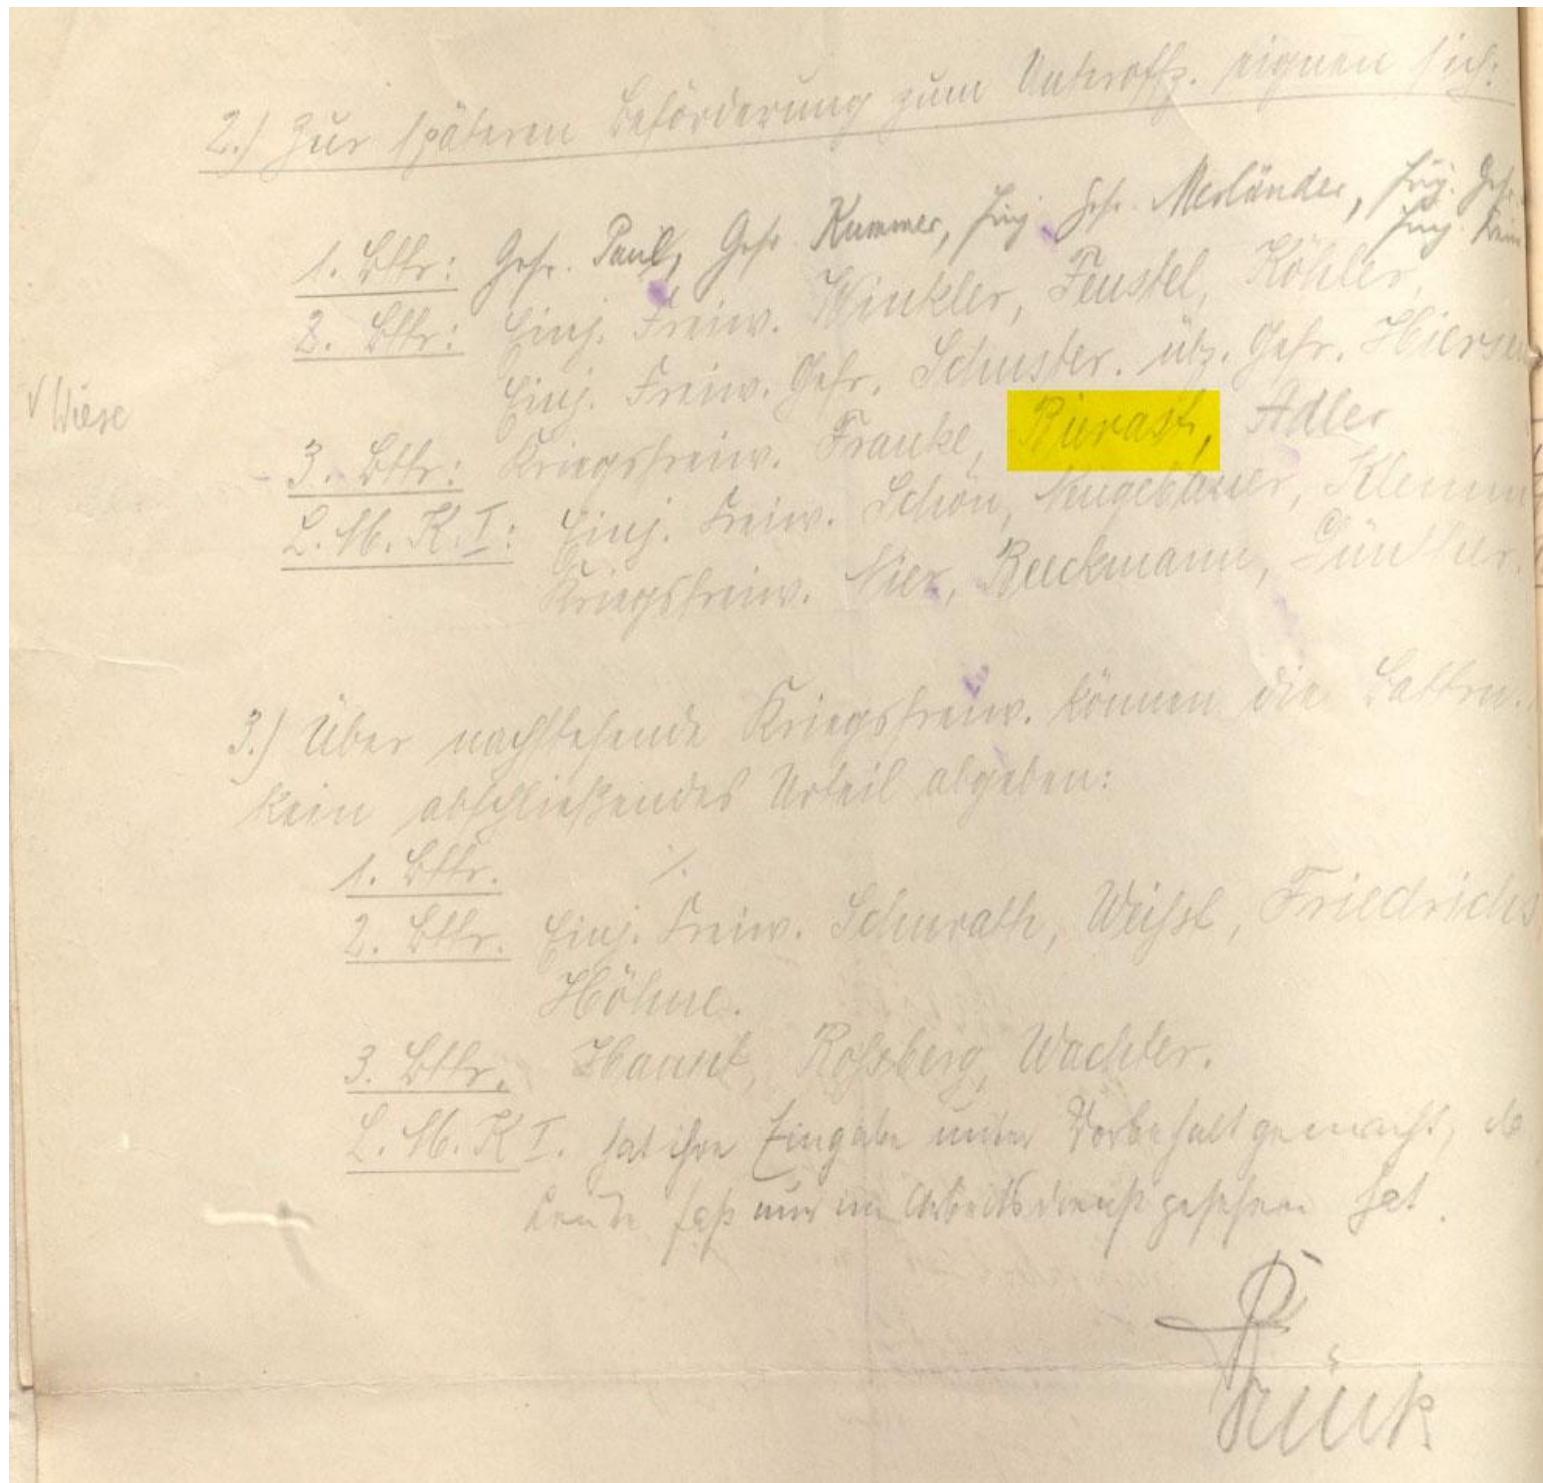 2.) Zur späteren Beförderung zum Unteroffz. eignen sich:
1. Bttr: Gefr. Paul, Gefr. Kummer, Einj. Gefr. Merländer, Einj. Gefr.
Einj.
2. Bttr: Einj. Freiw. Winkler, Feustel, Köhler,
Einj. Freiw. Gefr. Schuster. übz. Gefr.
√ Wiese
3. Bttr: Kriegsfreiw. Franke, Adler
L. M. K. I: Einj. Freiw. Schön, Neugebauer, Klemm
Kriegsfreiw. Nier, Beuckmann, Günther.
3.) Über nachstehende Kriegsfreiw. können die Battrn.
kein abschließendes Urteil abgeben:
1. Bttr. ⁒
2. Bttr. Einj. Freiw. Schurath, Weißl, Friedrichs
Höhne.
3. Bttr. Roßberg, Wachler.
L. M. K I. hat ihre Eingabe unter Vorbehalt gemacht, da
Leute fast nur im Arbeitsdienst gesehen hat.